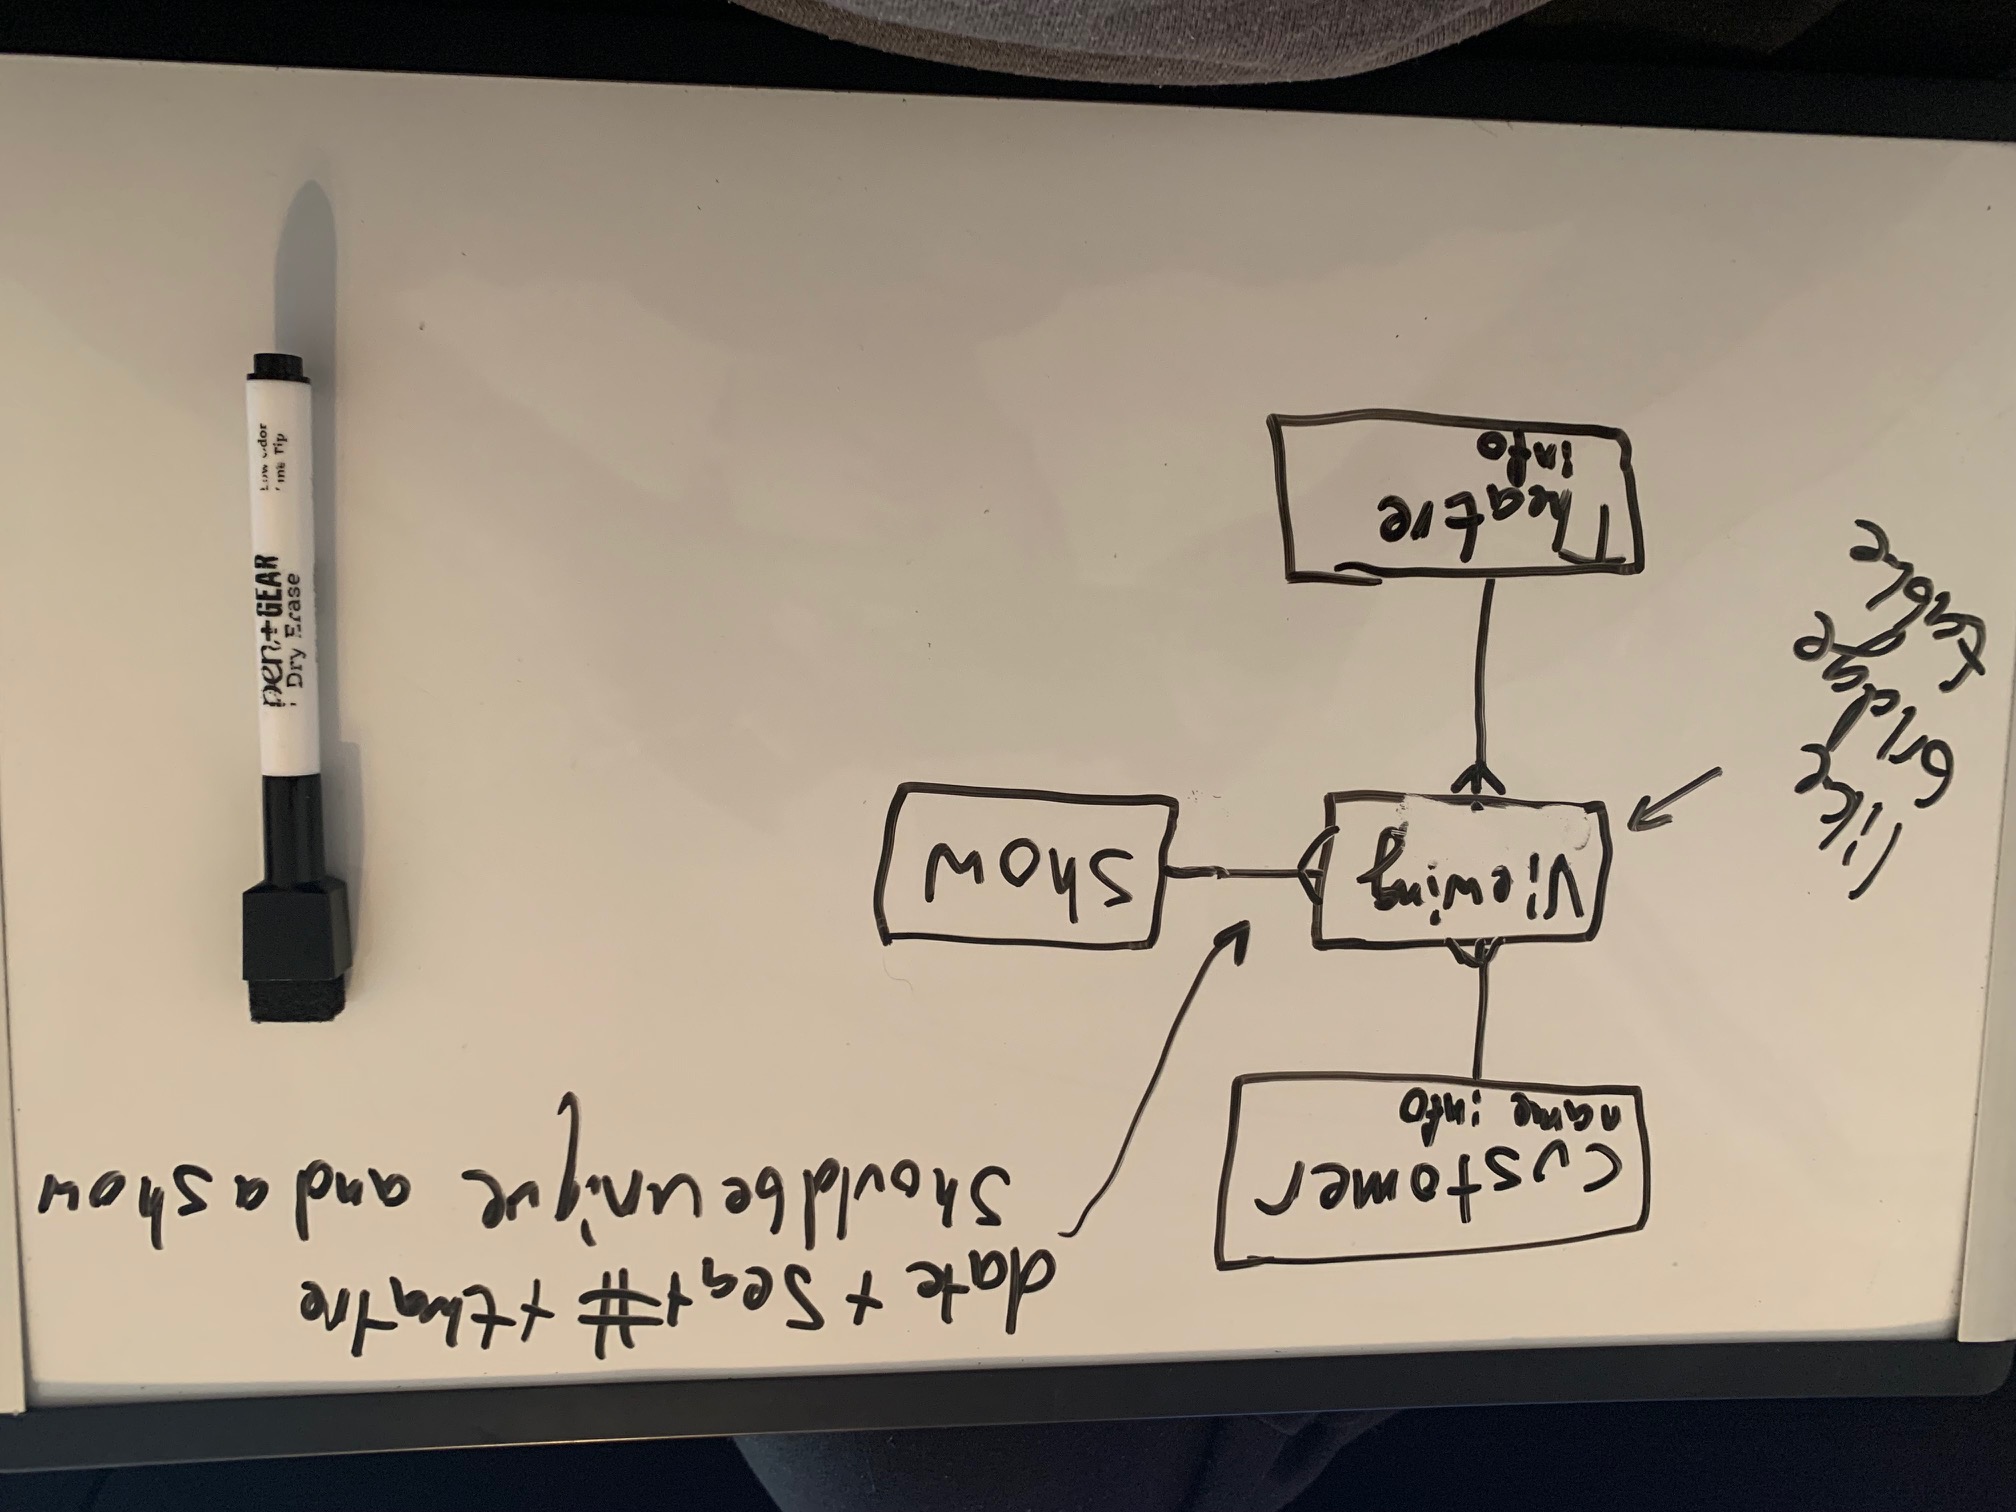 date + Seat # + theatre
should be unique and a show
Customer
name info
Viewing
show
like
bridge
table
Theatre
info
pen+GEAR
Dry Erase